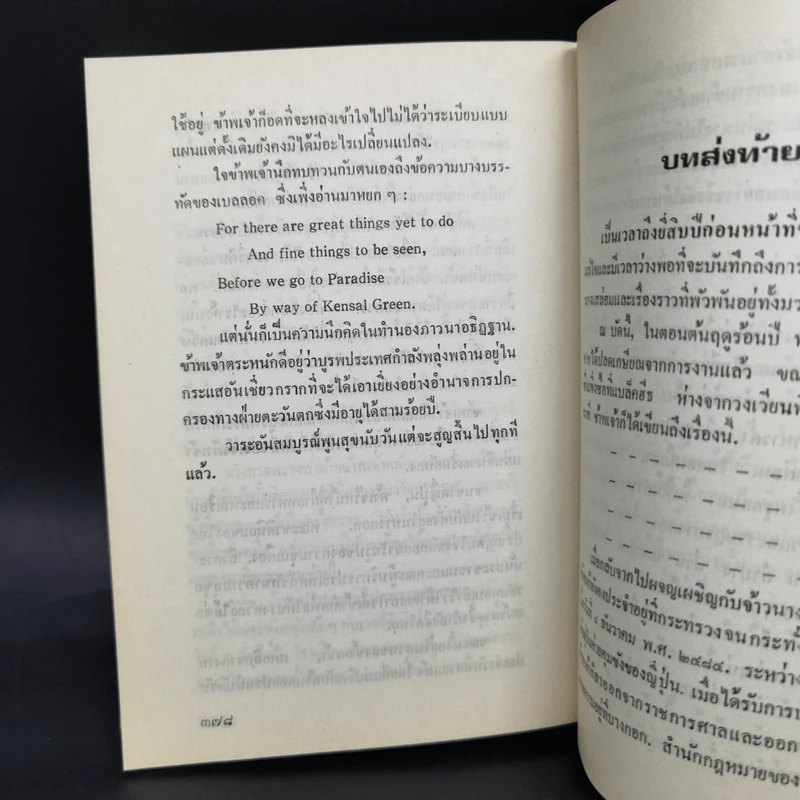 ใช้อยู่ ข้าพเจ้าก็อดที่จะหลงเข้าใจไปไม่ได้ว่าระเบียบแบบ
แผนแต่ดั้งเดิมยังคงมิได้มีอะไรเปลี่ยนแปลง.
ใจข้าพเจ้านึกทบทวนกับตนเองถึงข้อความบางบรร-
ทัดของเบลลอค ซึ่งเพิ่งอ่านมาหยก ๆ :
For there are great things yet to do
And fine things to be seen,
Before we go to Paradise
By way of Kensal Green.
แต่นั่นก็เป็นความนึกคิดในทำนองภาวนาอธิฏฐาน.
ข้าพเจ้าตระหนักดีอยู่ว่าบูรพประเทศกำลังพลุ่งพล่านอยู่ใน
กระแสอันเชี่ยวกรากที่จะได้เอาเยี่ยงอย่างอำนาจการปก-
ครองทางฝ่ายตะวันตกซึ่งมีอายุได้สามร้อยปี.
วาระอันสมบูรณ์พูนสุขนับวันแต่จะสูญสิ้นไปทุกที
แล้ว.
๓๗๘
บทส่งท้าย
เป็นเวลาถึงยี่สิบปีก่อนหน้าที่
และมีเวลาว่างพอที่จะบันทึกถึงการ
และเรื่องราวที่พัวพันอยู่ทั้งมว
ณ บัดนี้, ในตอนต้นฤดูร้อนปี
ได้ปลดเกษียณจากการงานแล้ว ขณ
ห่างจากวงเวียน
ข้าพเจ้าก็ได้เขียนถึงเรื่องนี้.
เมื่อกลับจากไปผจญเผชิญกับจ้าวนาง
ประจำอยู่ที่กระทรวง จนกระทั่ง
ธันวาคม พ.ศ. ๒๔๘๔. ระหว่าง
ค่ายคุมขังของญี่ปุ่น. เมื่อได้รับการป
ออกจากราชการศาลและออก
อยู่ที่บางกอก. สำนักกฎหมายของ